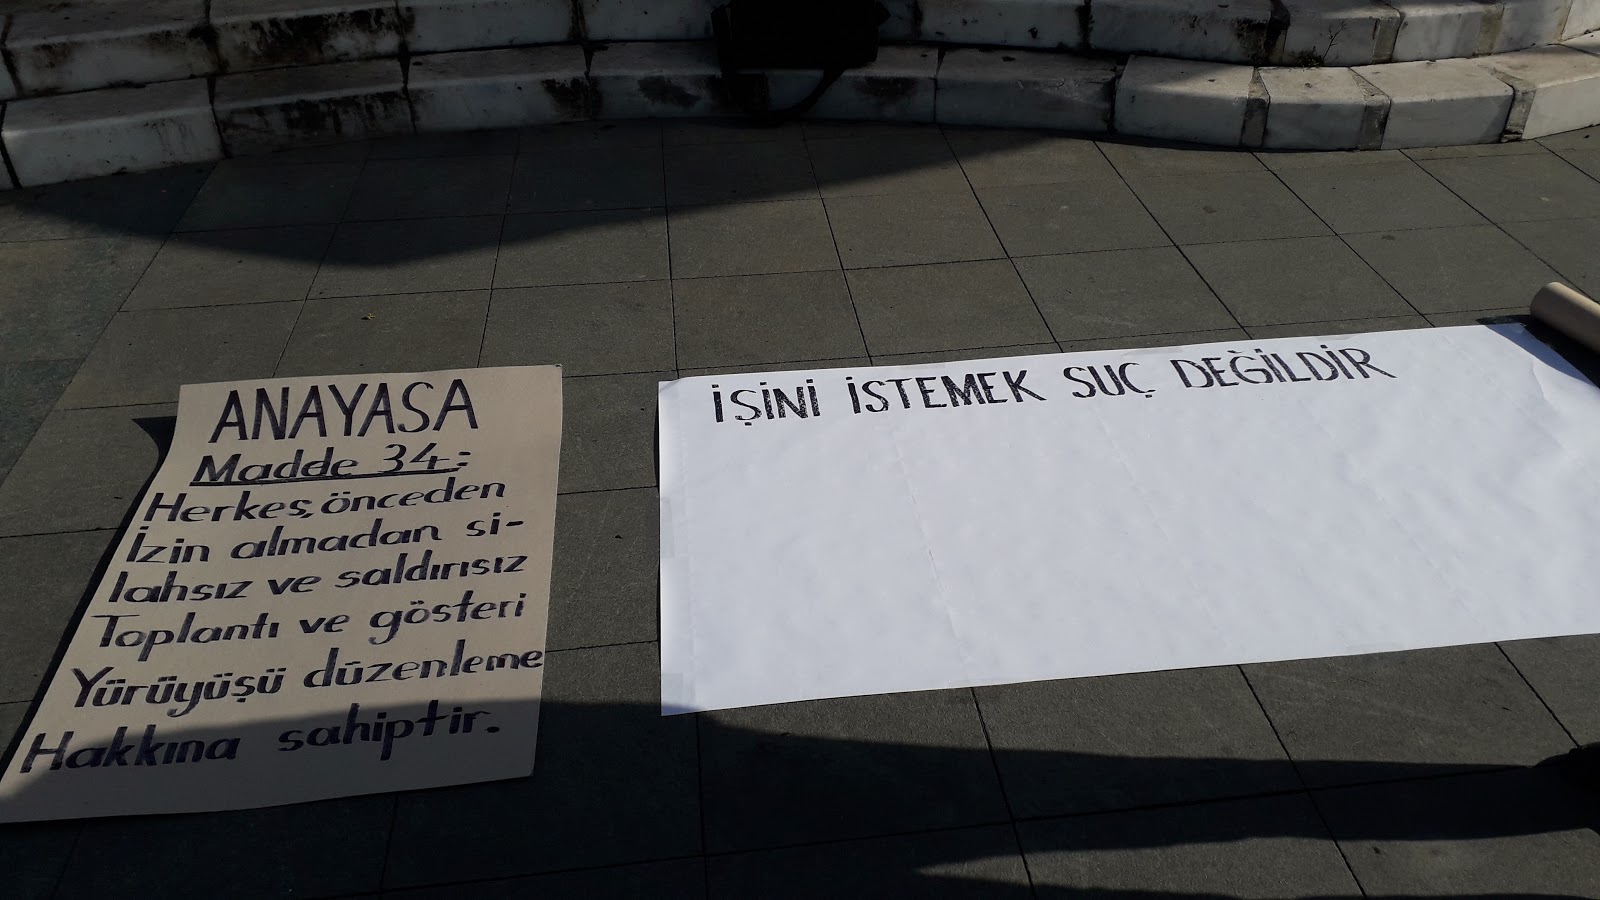 ANAYASA
Madde 34:
Herkes, önceden
İzin almadan si-
lahsız ve saldırısız
Toplantı ve gösteri
Yürüyüşü düzenleme
Hakkına sahiptir.
İŞİNİ İSTEMEK SUÇ DEĞİLDİR